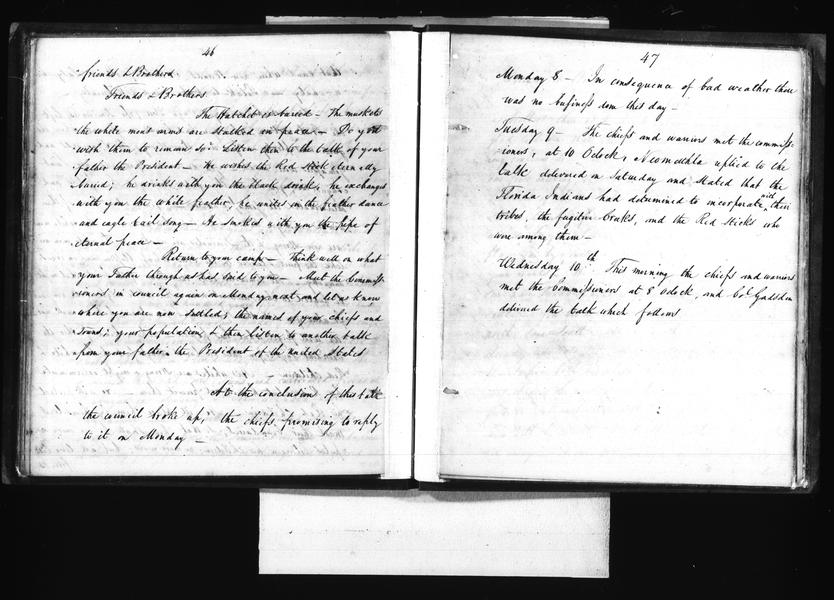 46
friends & Brothers
Friends & Brothers
The Hatchet is buried - The muskets
the white mens arms are Stacked in peace - Do you
wish them to remain so? Listen then to the talk of your
father the President - He wishes the Red Stick eternally
buried; he drinks with you the black drink, he exchanges
with you the white feather, he unites in the feather dance
and eagle tail song - He smokes with you the pipe of
eternal peace -
Return to your camp - Think well on what
your Father through us has said to you - Meet the Commiss-
ioners in council again on Monday next and let us know
where you are now Settled; the names of your chiefs and
towns; your population & then listen to another talk
from your father the President of the united States
At the conclusion of this talk
the council broke up; the chiefs promising to reply
to it on Monday -
47
Monday 8 - In consequence of bad weather there
was no business done this day -
Tuesday 9 - The chiefs and warriors met the commiss-
ioners, at 10 Oclock, Neomathla replied to the
talk delivered on Saturday and Stated that the
Florida Indians had determined to incorporate with their
tribes, the fugitive Creeks, and the Red Sticks who
were among them -
Wednesday 10th This morning the chiefs and warriors
met the Commissioners at 8 Oclock, and Col Gadsden
delivered the talk which follows